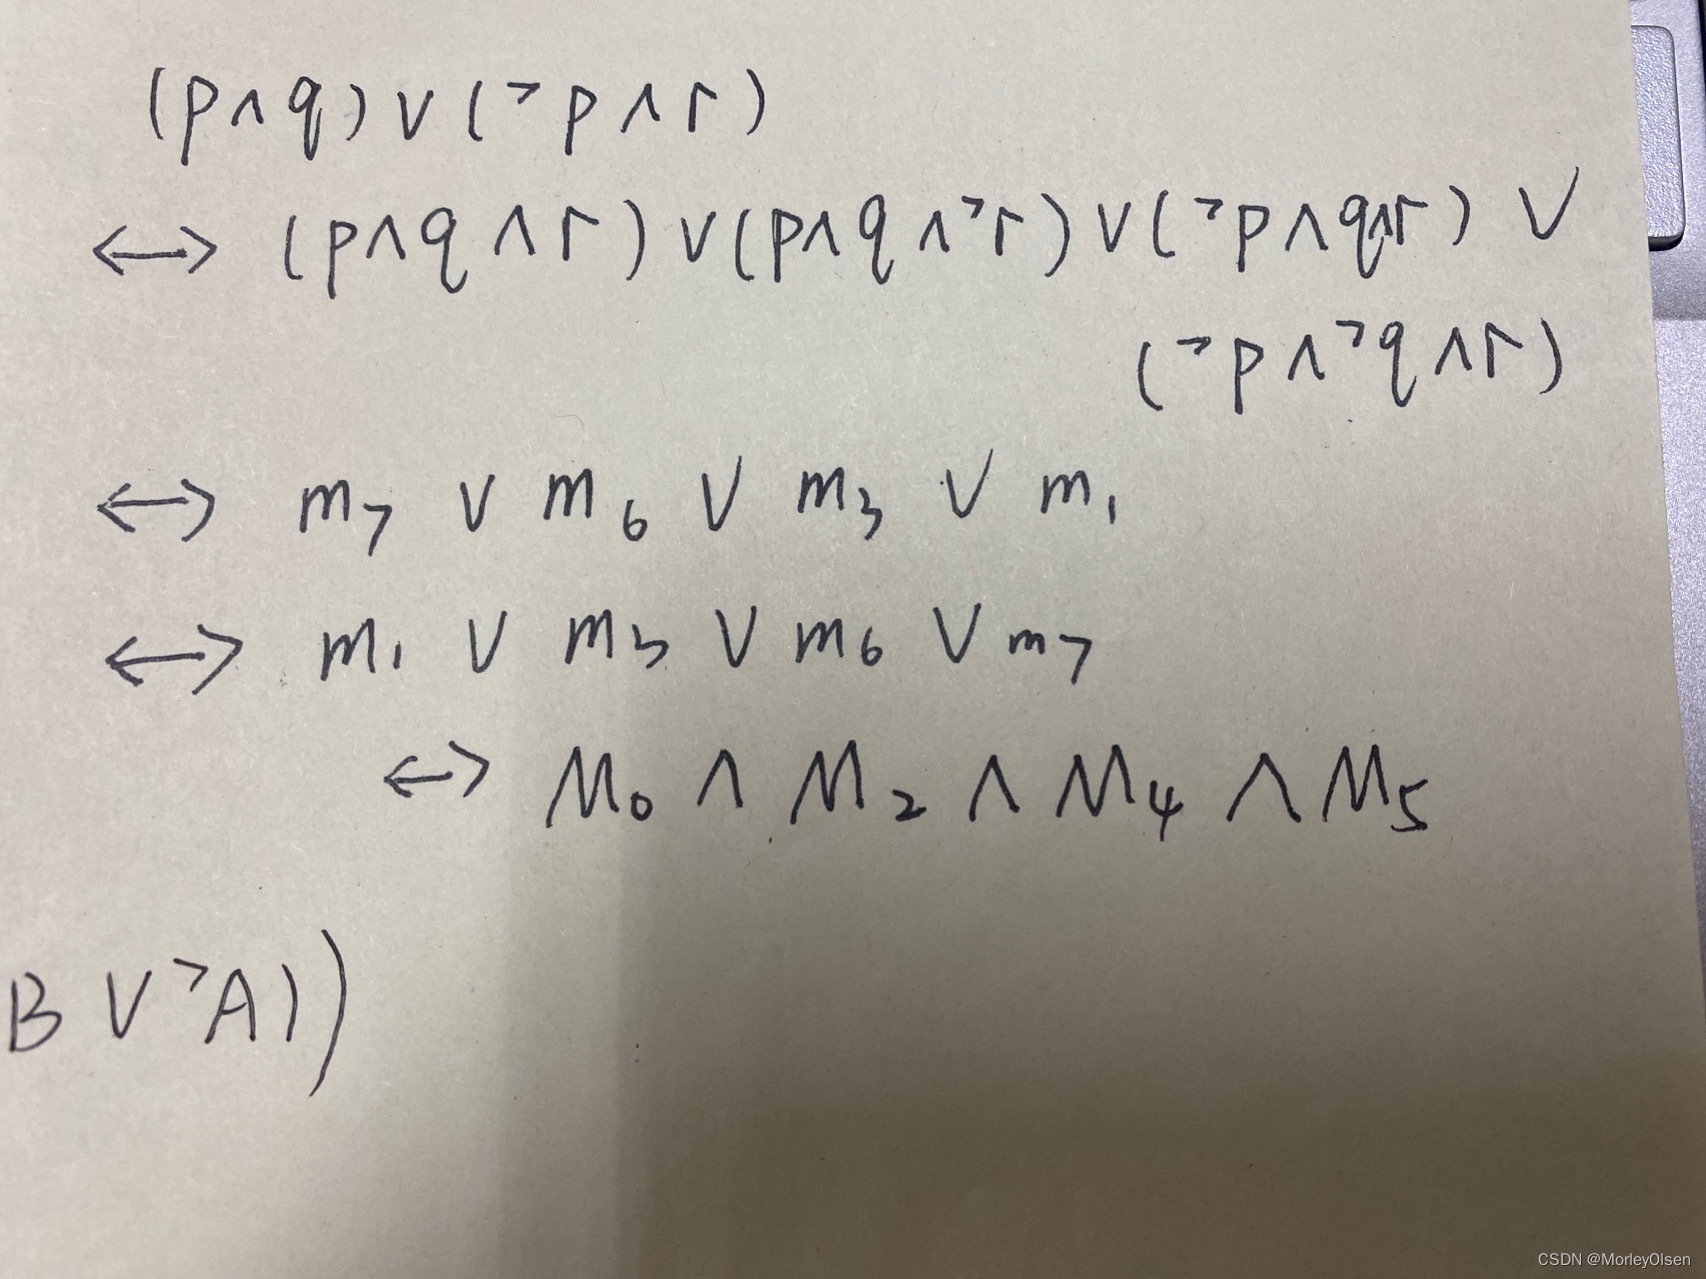 (p∧q)∨(¬p∧r)
↔ (p∧q∧r)∨(p∧q∧¬r)∨(¬p∧q∧r)∨
(¬p∧¬q∧r)
↔ m₇ ∨ m₆ ∨ m₃ ∨ m₁
↔ m₁ ∨ m₃ ∨ m₆ ∨ m₇
↔ M₀ ∧ M₂ ∧ M₄ ∧ M₅
B∨¬A))
CSDN @MorleyOlsen